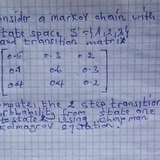 onsider a markov chain with
state space S={1,2,3}
and transition matrix
0.5 0.3 0.2
0.6 0.3
0.4 0.4 0.2
compute the 2 step transition
probability from state one
to state using chapman
kolmogrov equation.